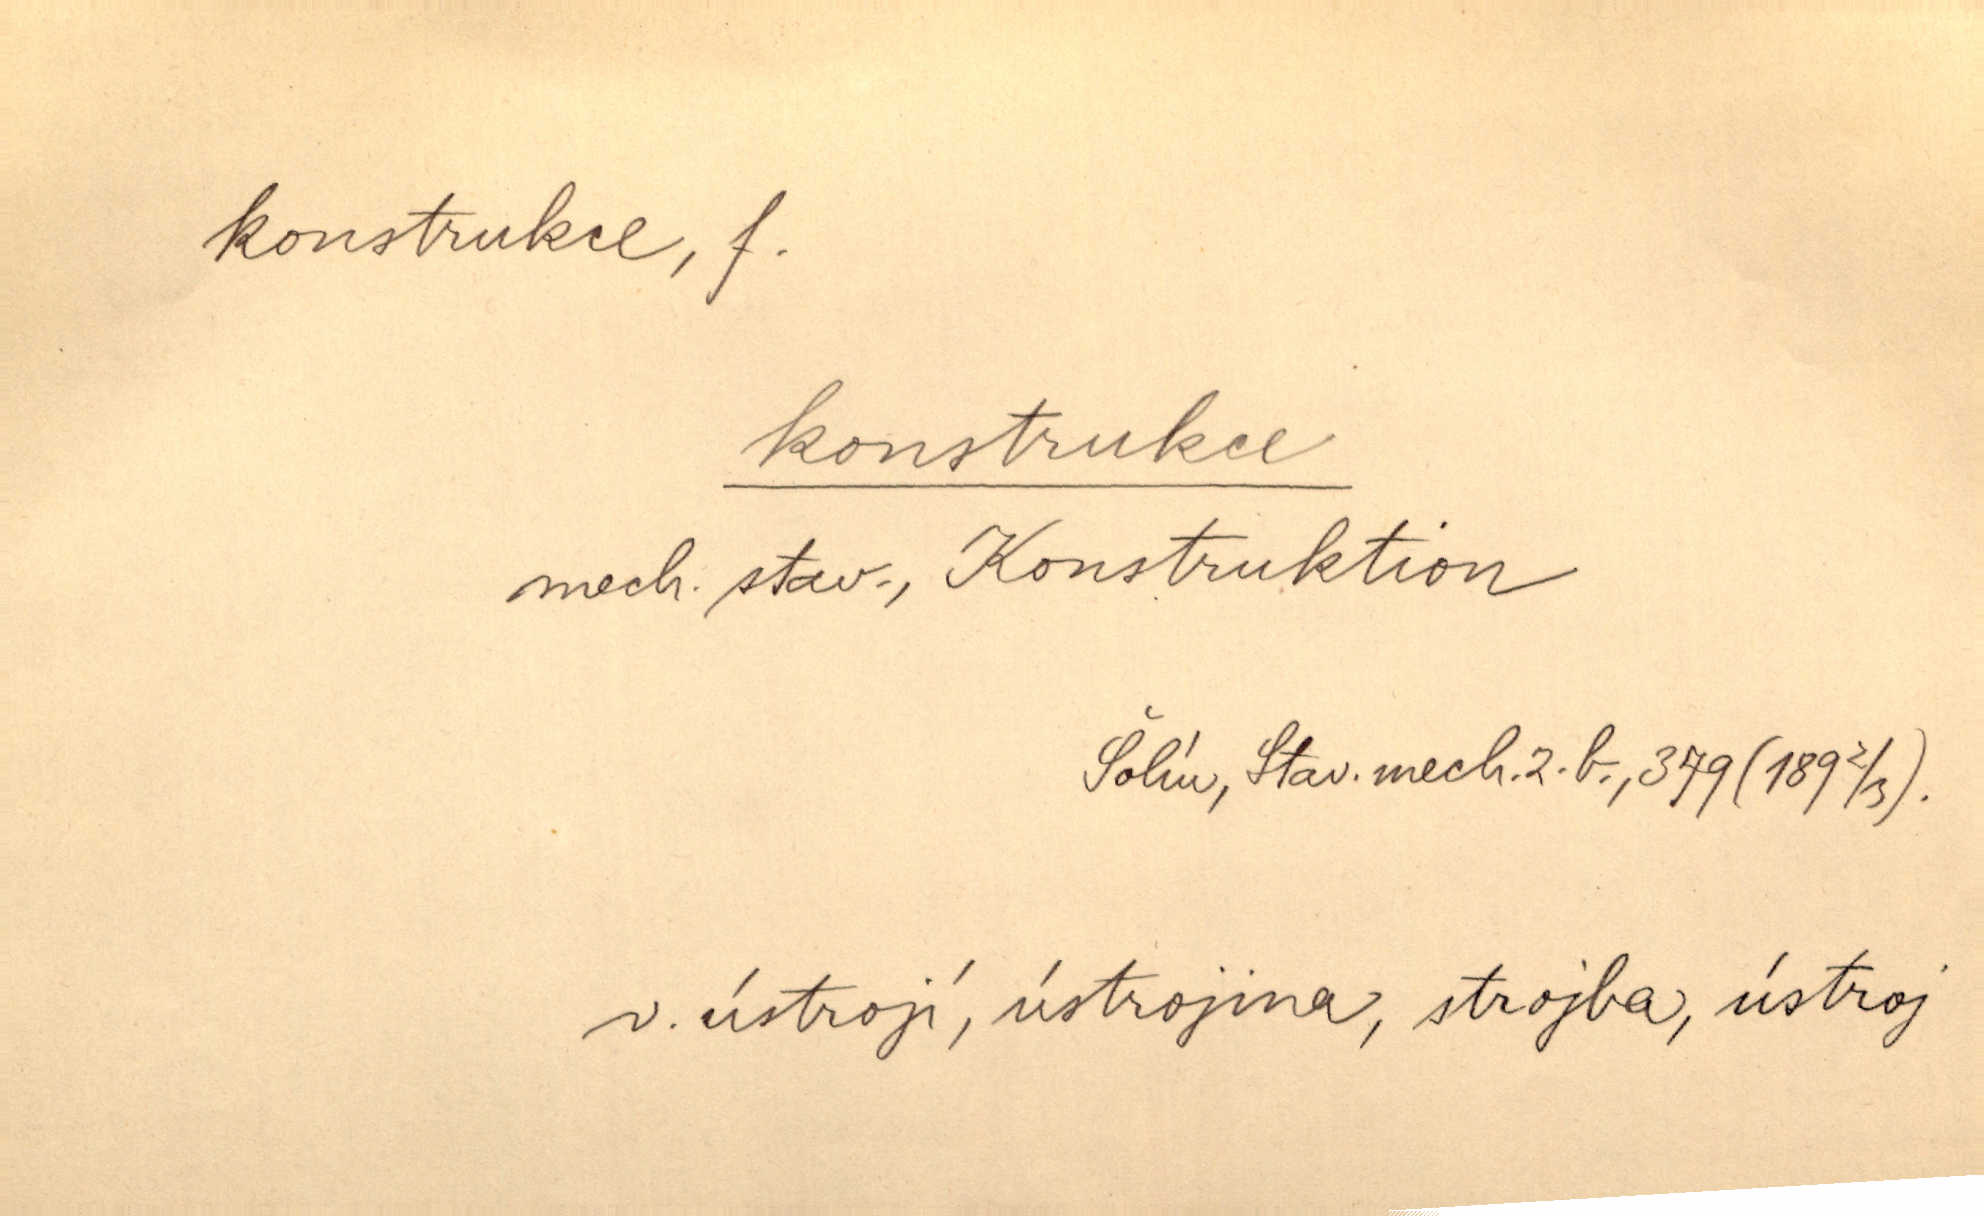 konstrukce, f.
konstrukce
mech. stav., Konstruktion
Šolín, Stav. mech. 2. b., 379 (189 2/3).
v. ústrojí, ústrojina, strojba, ústroj